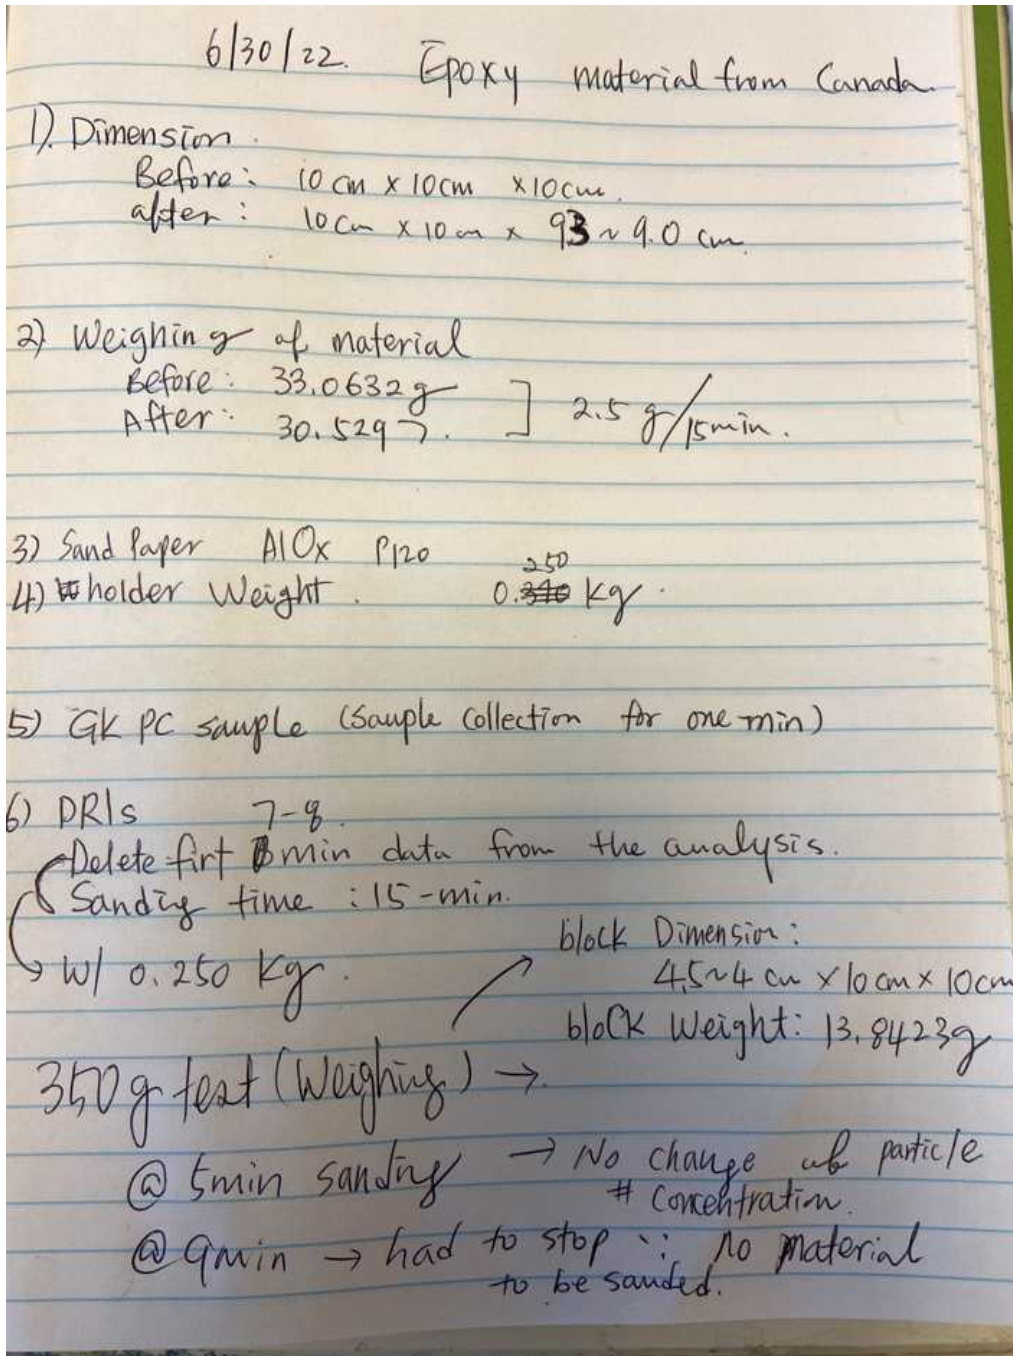 6/30/22. Epoxy material from Canada.
1). Dimension.
Before: 10 cm x 10cm x10cm.
after: 10 cm x 10 cm x 93 ~ 9.0 cm.
2) Weighing of material
Before: 33.0632g
After: 30.5297. ] 2.5 g/15min.
3) Sand Paper AlOx P120
4) holder Weight. 0.250 kg.
5) GK PC sample (sample collection for one min)
6) DRIs 7-8.
Delete firt min data from the analysis.
Sanding time : 15-min.
W/ 0.250 kg.
block Dimension:
4.5~4 cm x 10 cm x 10cm
block Weight: 13.8423g
350g test (Weighing) →.
@ 5min sanding → No change of particle
# concentration.
@ 9min → had to stop ∵ no material
to be sanded.